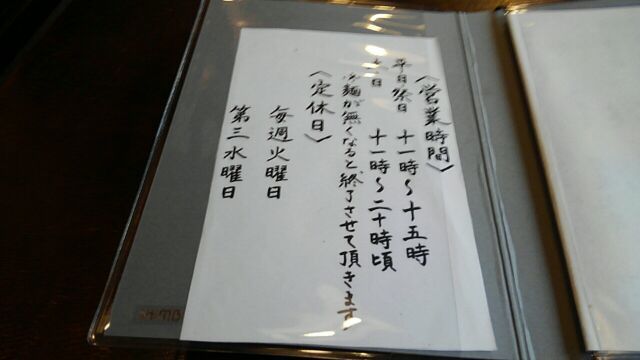 〈営業時間〉
平日祭日 十一時〜十五時
日 十一時〜二十時頃
麺が無くなると終了させて頂きます
〈定休日〉
毎週火曜日
第三水曜日